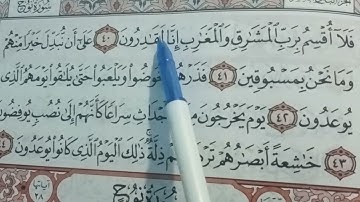 سُورَةُ نُوحٍ
فَلَآ أُقْسِمُ بِرَبِّ ٱلْمَشَٰرِقِ وَٱلْمَغَٰرِبِ إِنَّا لَقَٰدِرُونَ ٤٠ عَلَىٰٓ أَن نُّبَدِّلَ خَيْرًا مِّنْهُمْ
وَمَا نَحْنُ بِمَسْبُوقِينَ ٤١ فَذَرْهُمْ يَخُوضُوا۟ وَيَلْعَبُوا۟ حَتَّىٰ يُلَٰقُوا۟ يَوْمَهُمُ ٱلَّذِى
يُوعَدُونَ ٤٢ يَوْمَ يَخْرُجُونَ مِنَ ٱلْأَجْدَاثِ سِرَاعًا كَأَنَّهُمْ إِلَىٰ نُصُبٍ يُوفِضُونَ
٤٣ خَٰشِعَةً أَبْصَٰرُهُمْ تَرْهَقُهُمْ ذِلَّةٌ ۚ ذَٰلِكَ ٱلْيَوْمُ ٱلَّذِى كَانُوا۟ يُوعَدُونَ ٤٤
سُورَةُ نُوحٍ
آياتها ٢٨